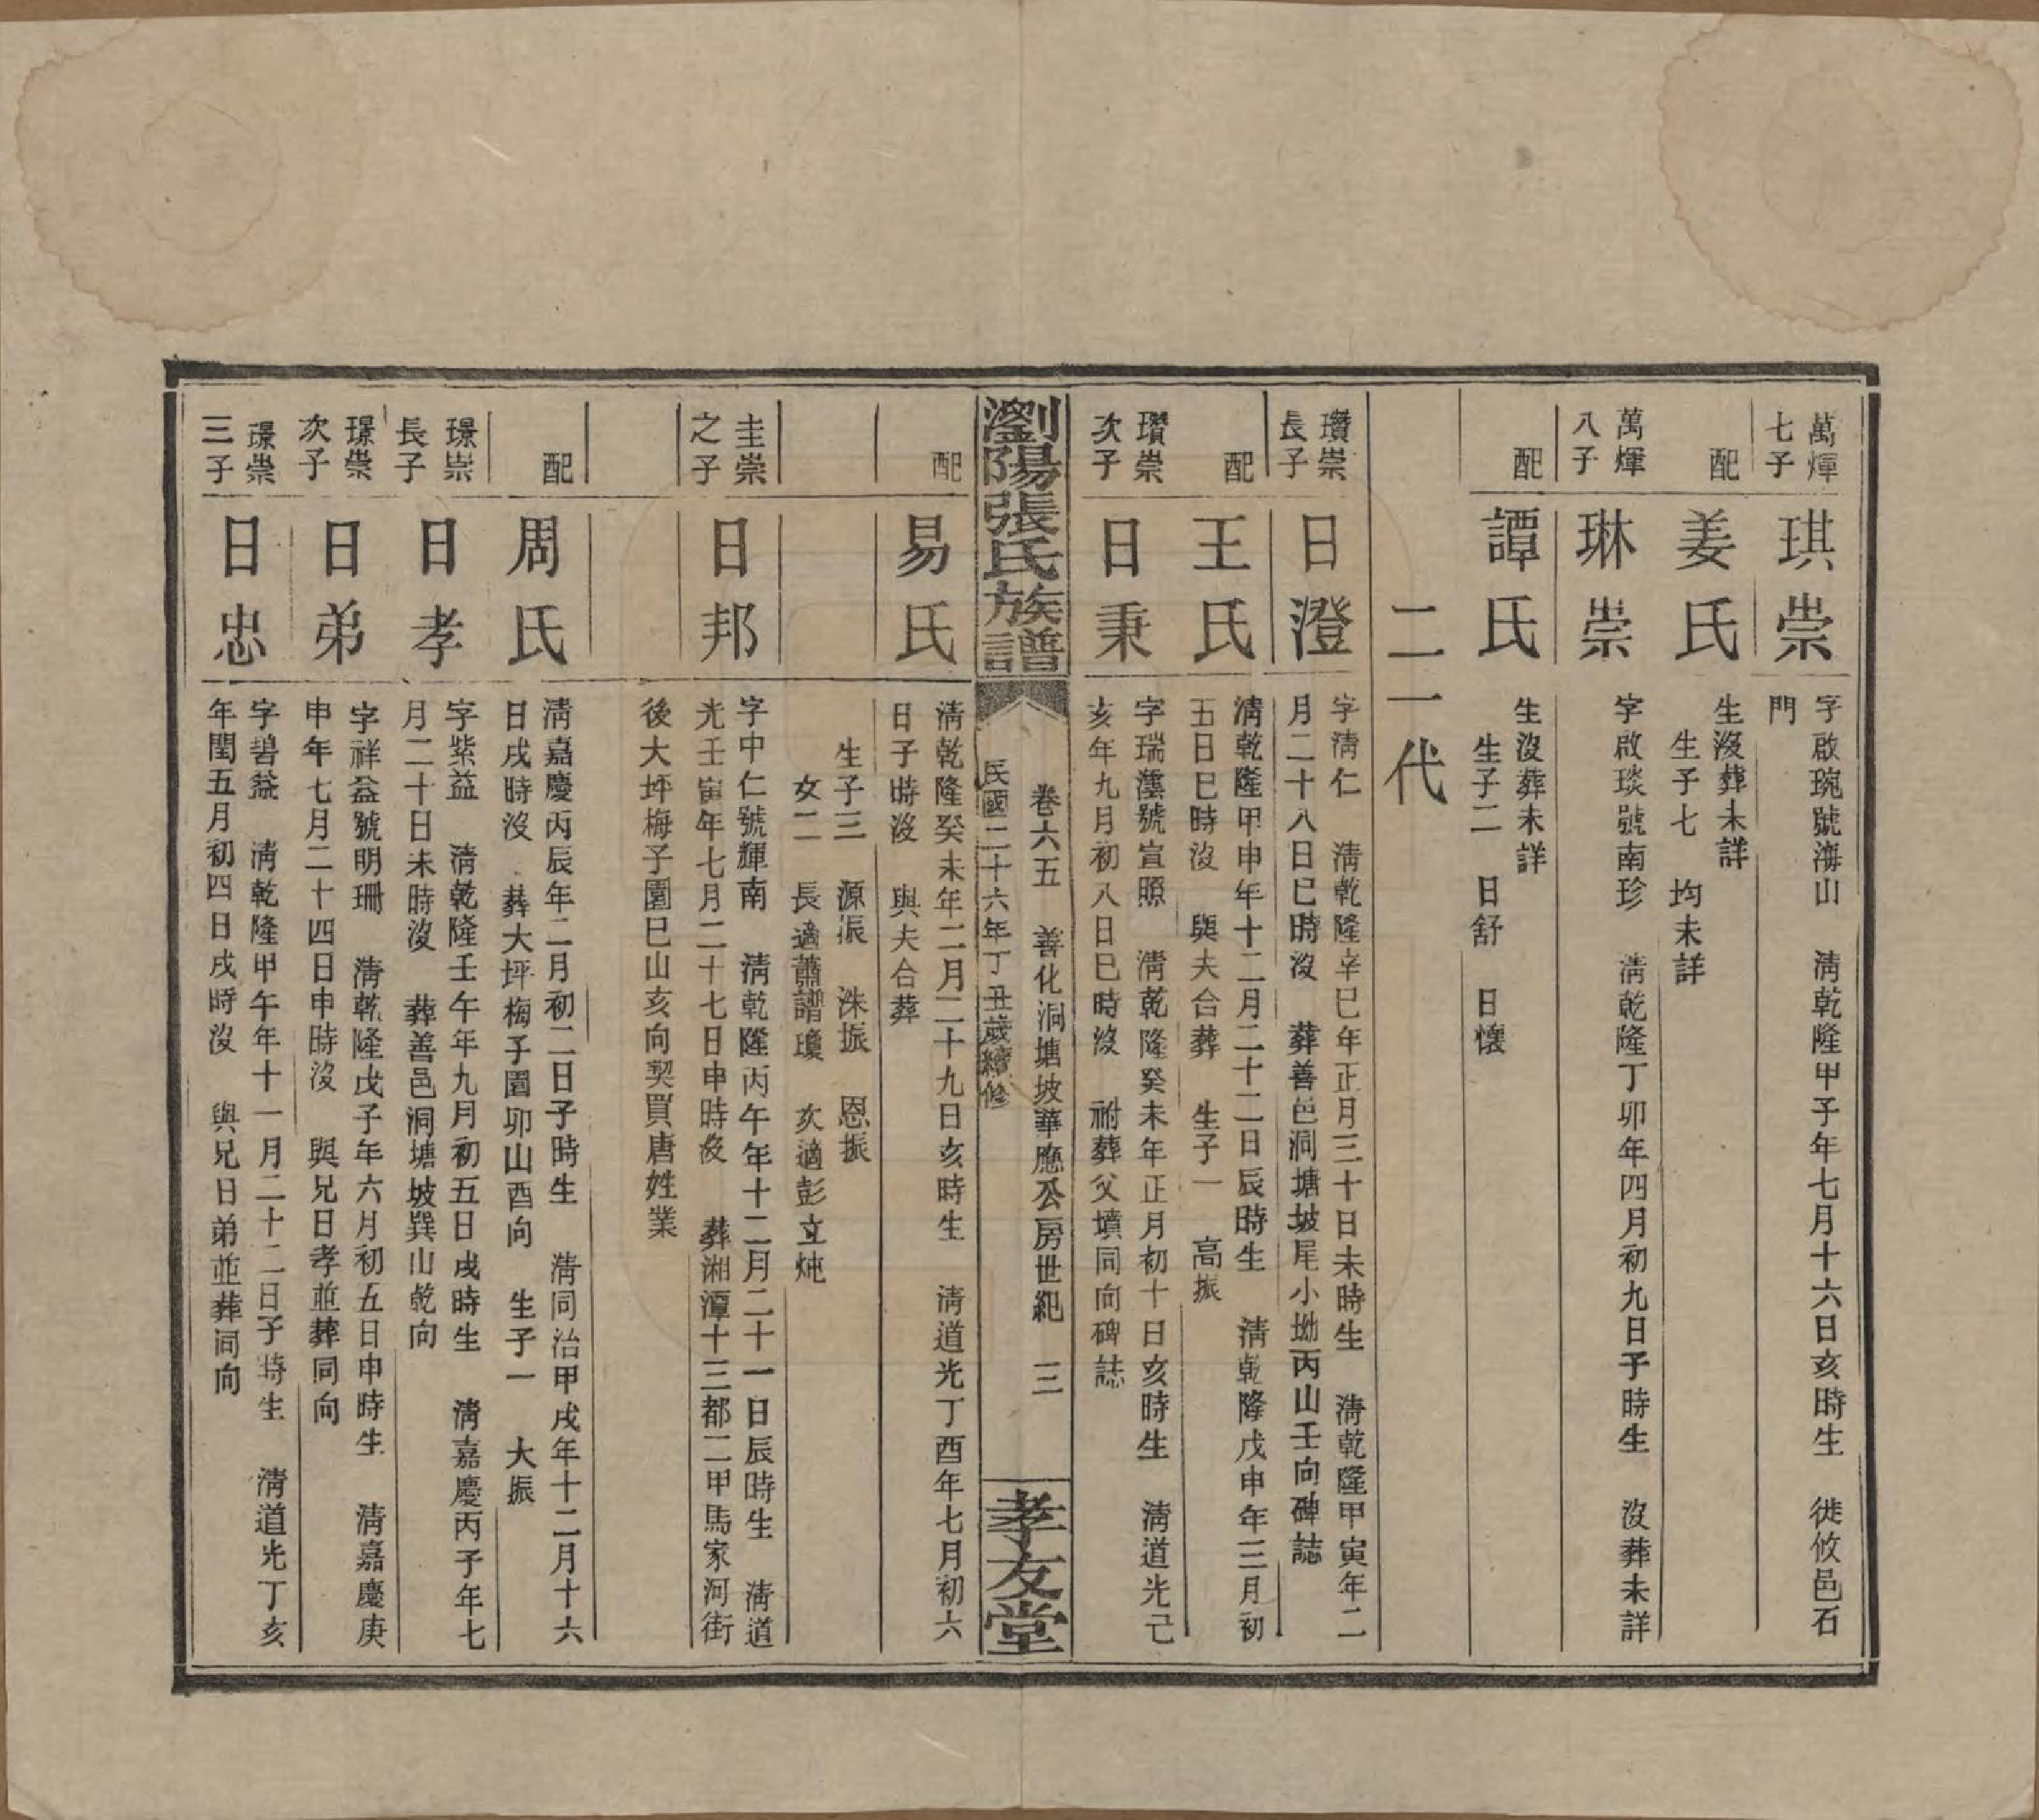 萬煇
七子
琪崇
字啟琬號海山　淸乾隆甲子年七月十六日亥時生　徙攸邑石
門
配
姜氏
生沒葬未詳
生子七　均未詳
萬煇
八子
琳崇
字啟琰號南珍　淸乾隆丁卯年四月初九日子時生　沒葬未詳
配
譚氏
生沒葬未詳
生子二　日舒　日懷
二一代
瓚崇
長子
日澄
字淸仁　淸乾隆辛巳年正月三十日未時生　淸乾隆甲寅年二
月二十八日巳時沒　葬善邑洞塘坡尾小坳丙山壬向碑誌
配
王氏
淸乾隆甲申年十二月二十二日辰時生　淸乾隆戊申年三月初
五日巳時沒　與夫合葬　生子一　高振
瓚崇
次子
日秉
字瑞藻號宣照　淸乾隆癸未年正月初十日亥時生　淸道光己
亥年九月初八日巳時沒　祔葬父墳同向碑誌
瀏陽張氏族譜
卷六五　善化洞塘坡華應公房世紀　三
民國二十六年丁丑歲續修
孝友堂
配
易氏
淸乾隆癸未年二月二十九日亥時生　淸道光丁酉年七月初六
日子時沒　與夫合葬
生子三　源振　洙振　恩振
女二　長適蕭譜瓊　次適彭立炖
圭崇
之子
日邦
字中仁號輝南　淸乾隆丙午年十二月二十一日辰時生　淸道
光壬寅年七月二十七日申時沒　葬湘潭十三都二甲馬家河街
後大坪梅子園巳山亥向契買唐姓業
配
周氏
淸嘉慶丙辰年二月初二日子時生　淸同治甲戌年十二月十六
日戌時沒　葬大坪梅子園卯山酉向　生子一　大振
璟崇
長子
日孝
字紫益　淸乾隆壬午年九月初五日戌時生　淸嘉慶丙子年七
月二十日未時沒　葬善邑洞塘坡巽山乾向
璟崇
次子
日弟
字祥益號明珊　淸乾隆戊子年六月初五日申時生　淸嘉慶庚
申年七月二十四日申時沒　與兄日孝並葬同向
璟崇
三子
日忠
字碧益　淸乾隆甲午年十一月二十二日子時生　淸道光丁亥
年閏五月初四日戌時沒　與兄日弟並葬同向